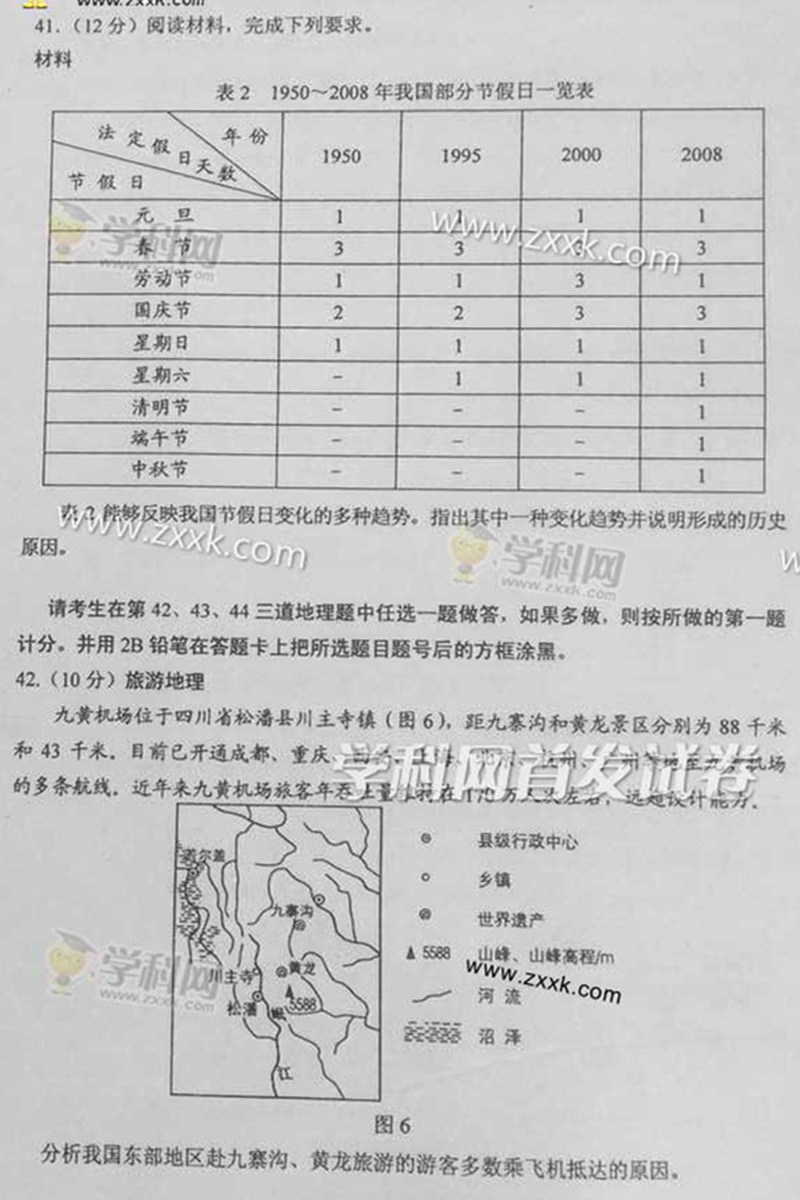 www.zxxk.com
41.（12分）阅读材料，完成下列要求。
材料
表2 1950～2008年我国部分节假日一览表
法定假日天数 年份 节假日 1950 1995 2000 2008
元旦 1 1 1 1
春节 3 3 3 3
劳动节 1 1 3 1
国庆节 2 2 3 3
星期日 1 1 1 1
星期六 – 1 1 1
清明节 – – – 1
端午节 – – – 1
中秋节 – – – 1
学科网
www.zxxk.com
www.zxxk.com
表2能够反映我国节假日变化的多种趋势。指出其中一种变化趋势并说明形成的历史
原因。
www.zxxk.com
学科网
www.zxxk.com
请考生在第42、43、44三道地理题中任选一题做答，如果多做，则按所做的第一题
计分。并用2B铅笔在答题卡上把所选题目题号后的方框涂黑。
42.（10分）旅游地理
九黄机场位于四川省松潘县川主寺镇（图6），距九寨沟和黄龙景区分别为88千米
和43千米。目前已开通成都、重庆、州等地至九黄机场
学科网首发试卷
的多条航线。近年来九黄机场旅客年吞吐量维持在170万人次左右，远超设计能力。
若尔盖
九寨沟
川主寺
黄龙
5588
松潘
岷
江
县级行政中心
乡镇
世界遗产
5588 山峰、山峰高程/m
www.zxxk.com
河流
沼泽
学科网
www.zxxk.com
图6
分析我国东部地区赴九寨沟、黄龙旅游的游客多数乘飞机抵达的原因。